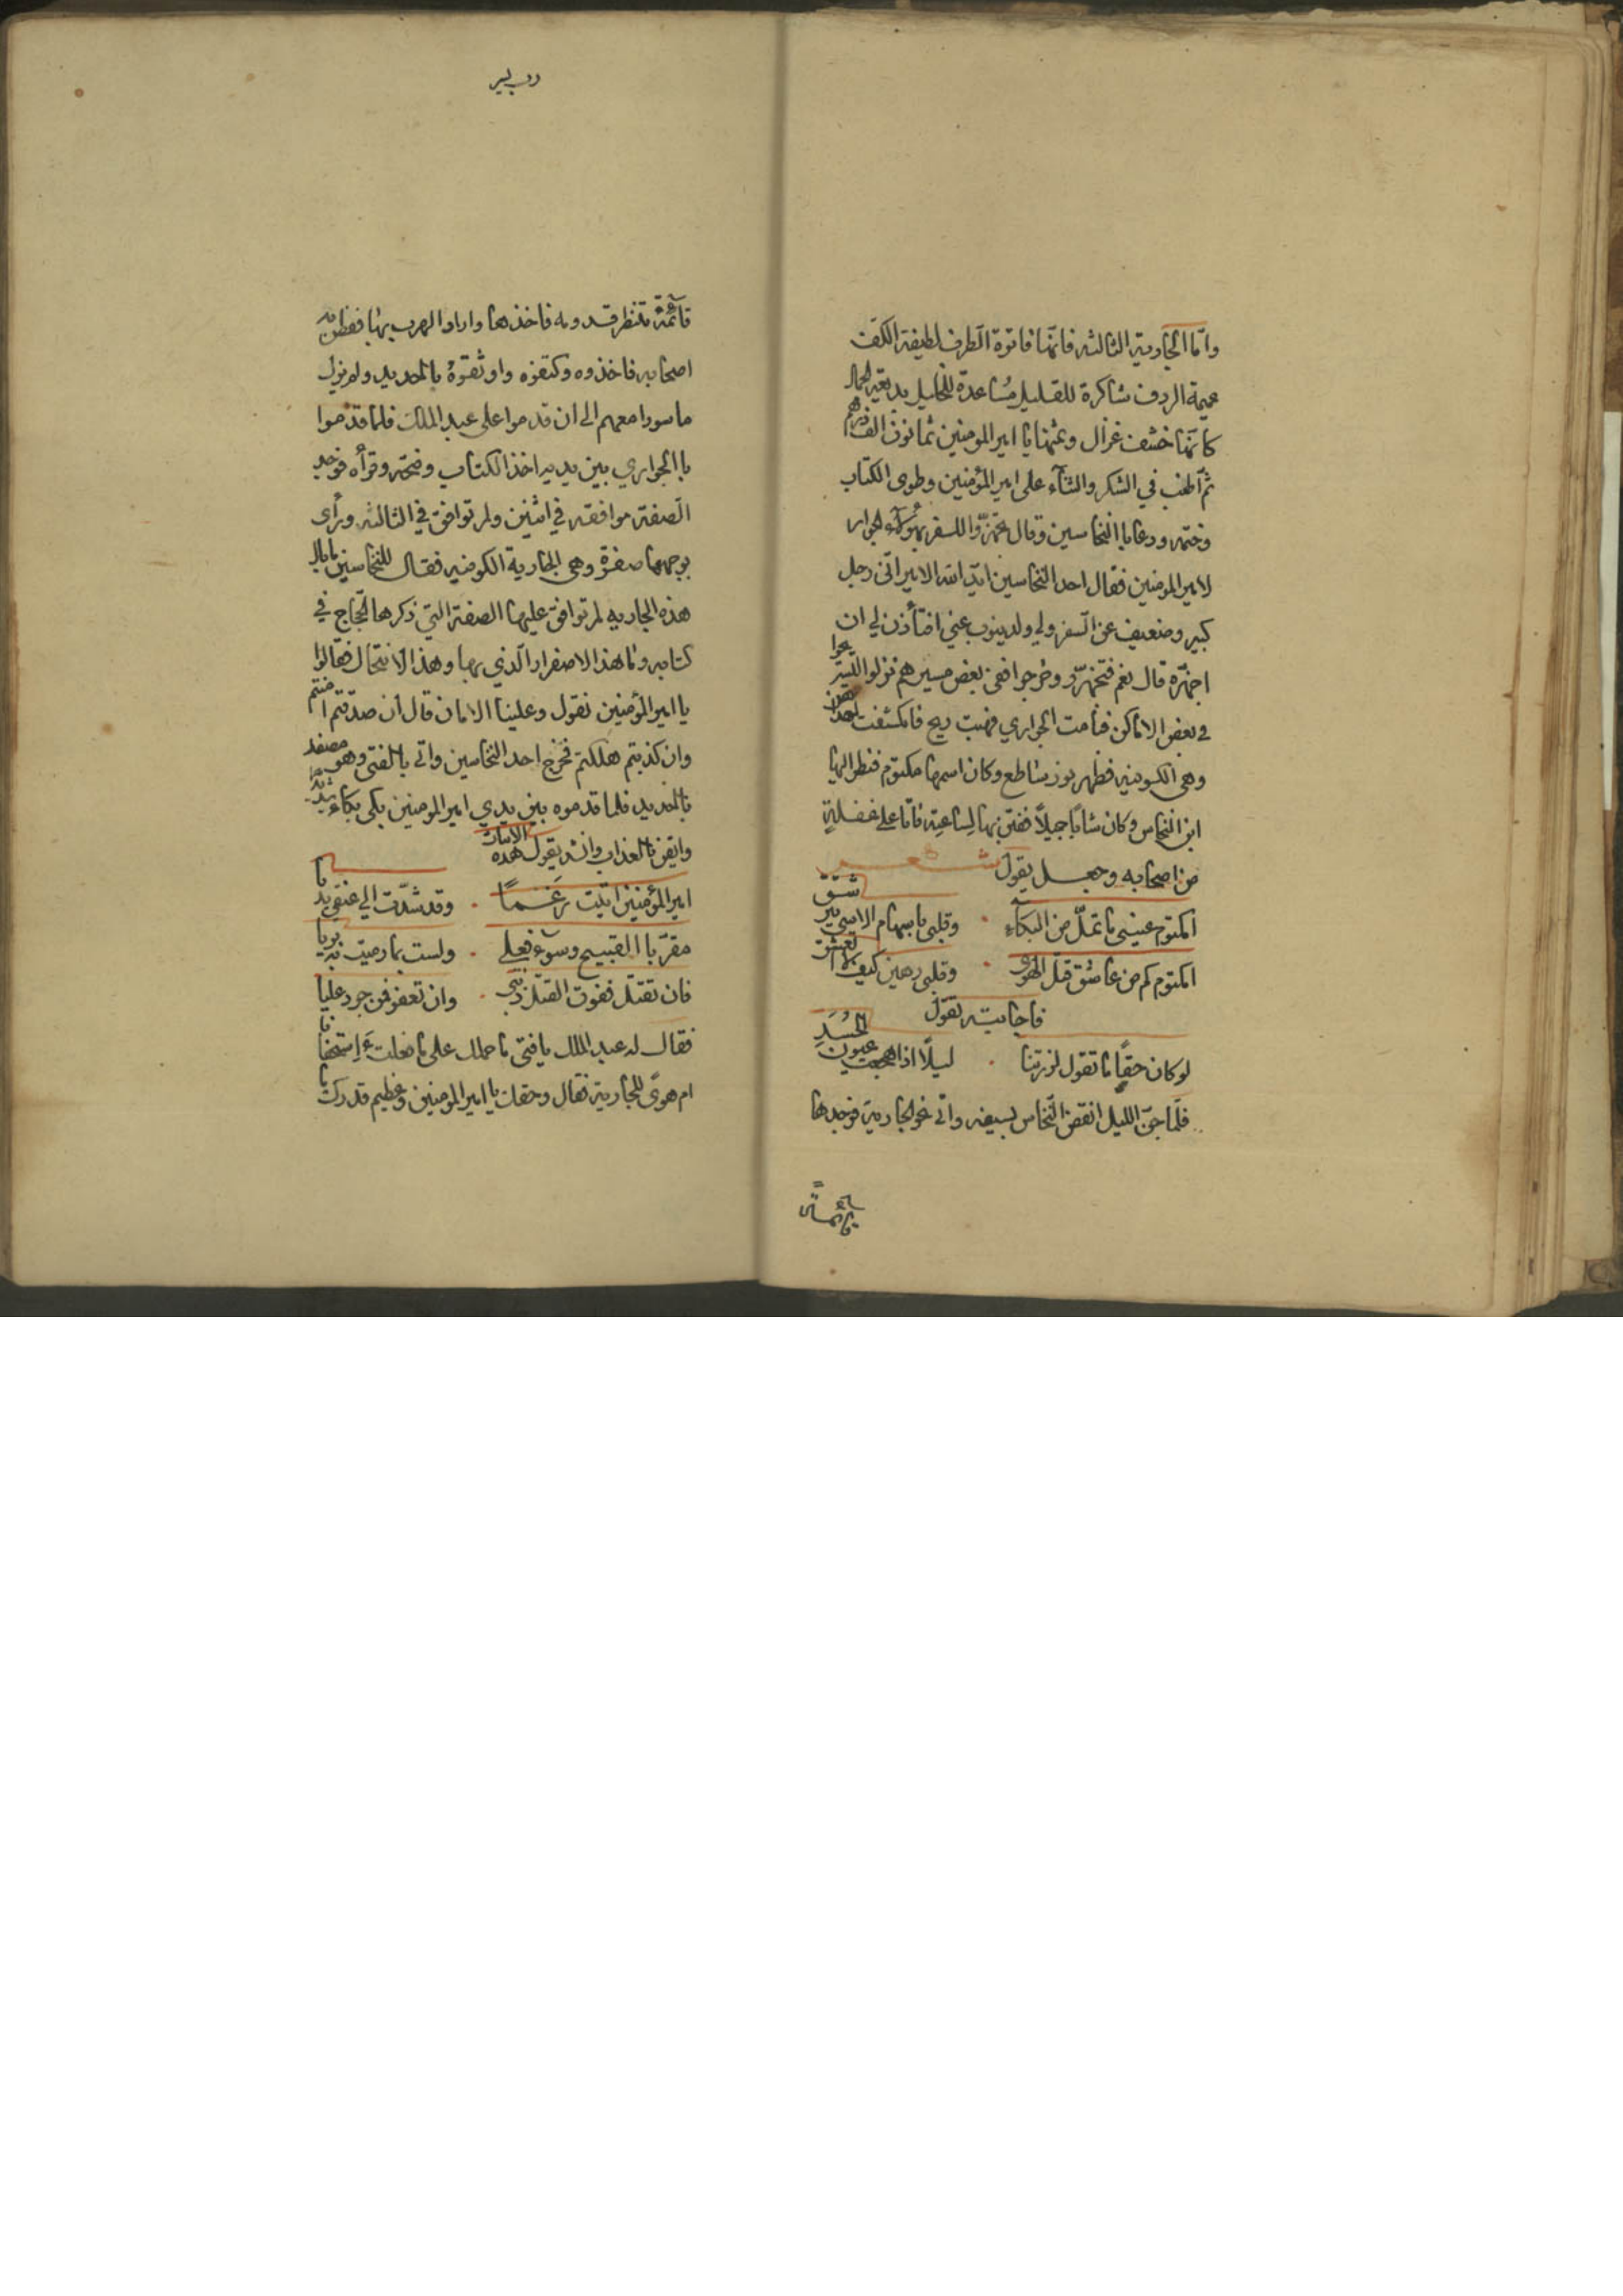 وامّا الجارية الثالثة فانّها فاترة الطرف لطيفة الكف
عميمة الردف شاكرة للقليل مُساعدة للخليل بديعة الجمال
كانّها خشف غزال وثمنها يا امير المومنين ثمانون الف درهم
ثم اطنب في الشكر والثنآء على امير المؤمنين وطوى الكتاب
وختمه ودعا باالنخاسين وقال تجهّزوا للسفر بهؤلآء الجوار
لامير المومنين فقال احد النخاسين ايّد الله الامير انّى رجل
كبير وضعيف عن السفر ولي ولد ينوب عنّي افتأذن لي ان
اجهّزه قال نعم فتجهزّو وخرجوا ففى بعض مسيرهم نزلوا ليستريحوا
في بعض الاماكن فنامت الجواري فهبت ريح فانكشفت احداهن
وهي الكوفيه فظهر نور ساطع وكان اسمها مكتوم فنظر اليها
ابن النخاس وكان شابا جميلاً ففتن بها لساعته فاتا على غفلة
من اصحابه وجعل يقول شعر
امكتوم عيني ما تملّ من البكآء ۰ وقلبى باسهام الاسى يترشق
امكتوم كم من عاشق قتل الهوى ۰ وقلبى رهين كيف لا اتعشق
فاجابته تقول
لو كان حقاً ما تقول لزرتنا ۰ ليلًا اذا هجعت عيون الحُسّدِ
فلمّا جنّ الليل انقض النخاس بسيفه واتى نحو الجارية فوجدها
قائمةً
قآئمةً تنتظر قدومه فاخذها واراد الهرب بها ففطن به
اصحابه فاخذوه وكتفوه واوثقوهُ باالحديد ولم يزل
ماسورا معهم الى ان قدموا على عبد الملك فلما قدموا
باالجواري بين يديه اخذ الكتاب وفتحه وقرأه فوجد
الصفة موافقة في اثنين ولم توافق في الثالثه ورأى
بوجهها صفرة وهي الجارية الكوفيه فقال للنخاسين ما بال
هذه الجاريه لم توافق عليها الصفة التي ذكرها الحجاج في
كتابه وما هذا الاصفرار الّذي بها وهذا الانتحال فقالوا
يا امير المؤمنين نقول وعلينا الامان قال ان صدقتم امنتم
وان كذبتم هلكتم فخرج احد النخاسين واتى باالفتى وهو مصفد
باالحديد فلما قدموه بين يدي امير المومنين بكى بكاءً شديدا
وايقن باالعذاب وانشد يقول هذه الابيات
امير المؤمنين اتيت رَغْمًا ۰ وقد شدّت الي عنقي يديا
مقرّ باالقبيح وسوء فعلي ۰ ولست بما رميت به بريا
فان تقتل ففوق القتل ذنبي ۰ وان تعفو فمن جود عليا
فقال له عبد الملك يا فتى ما حملك على ما فعلت ءَاِستخفافا
ام هوىً للجارية فقال وحقك يا امير المومنين وعظيم قدرك ما